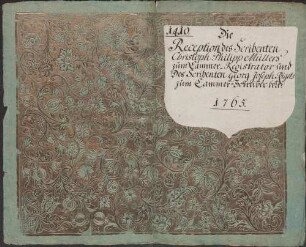 1410.
Die
Reception des Scribenten
Christoph Philipp Müllers
zum Cammer-Registrator und
des Scribenten Georg Joseph
zum Cammer-Schreiber betr.
1765.